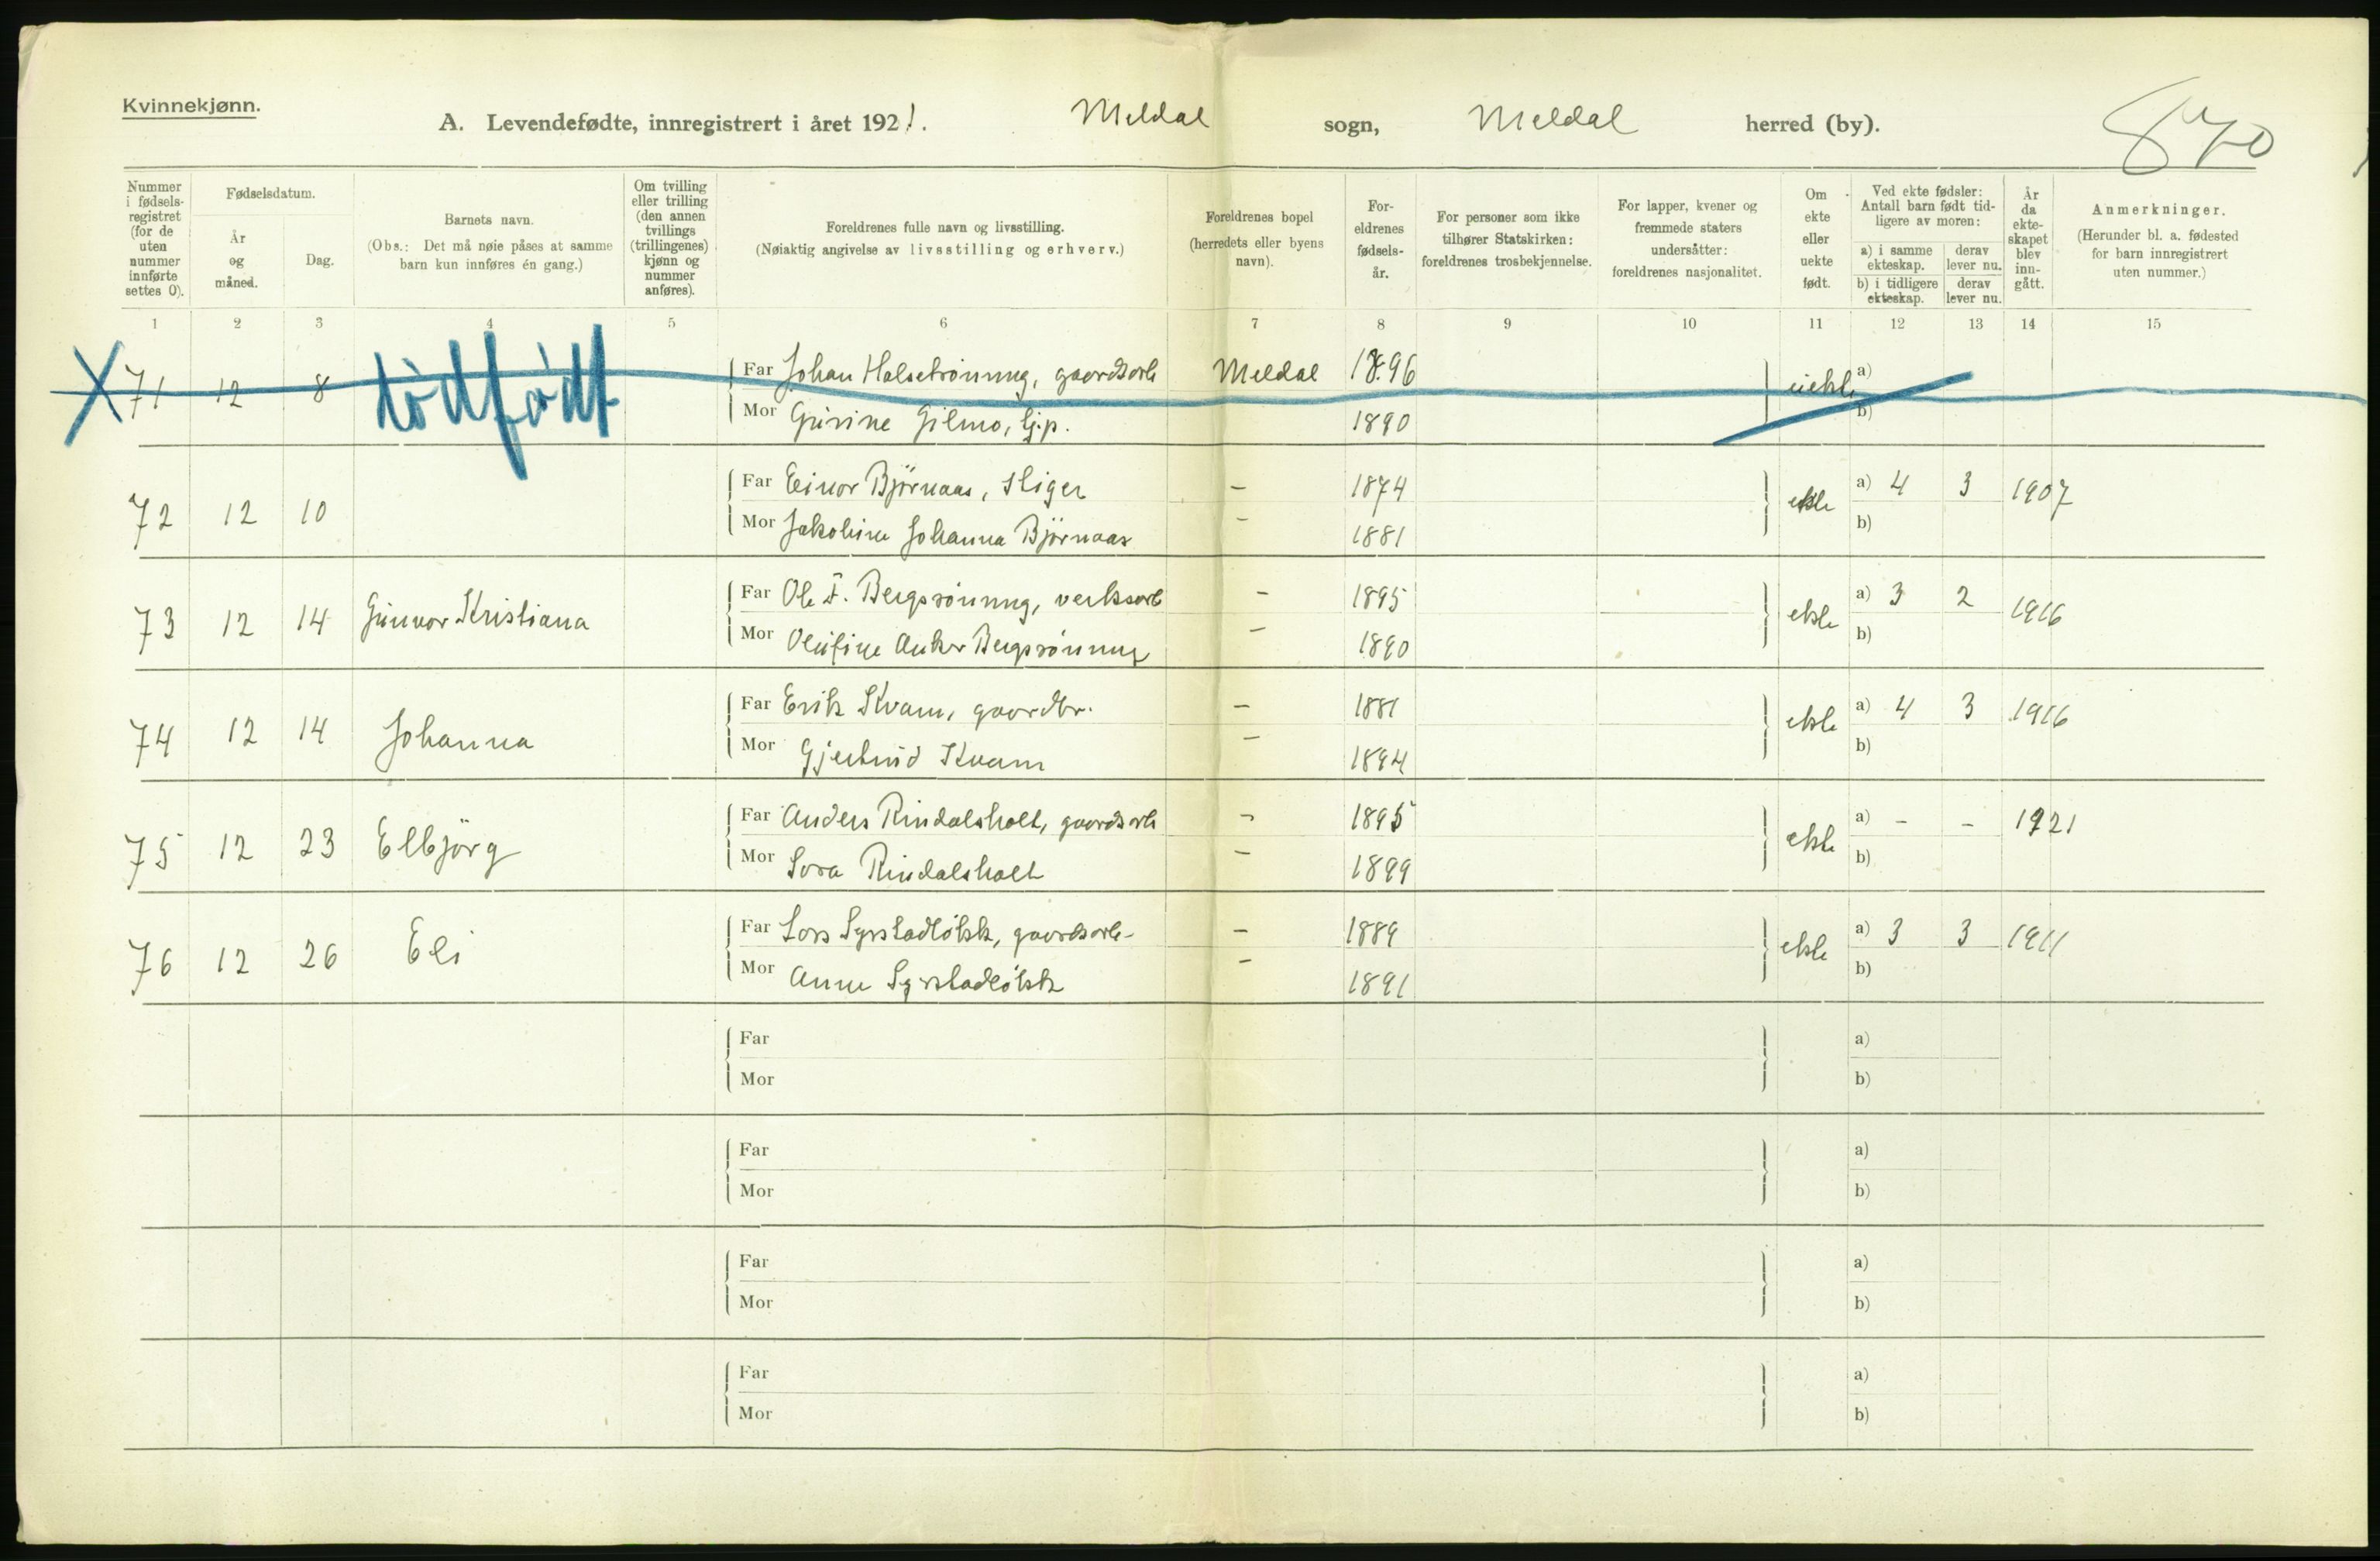 Kvinnekjønn.
A. Levendefødte, innregistrert i året 1921. Meldal sogn, Meldal herred (by).
870
Nummer i fødsels-registret (for de uten nummer innførte settes 0).
Fødselsdatum.
År og måned.
Dag.
Barnets navn.
(Obs.: Det må nøie påses at samme barn kun innføres én gang.)
Om tvilling eller trilling (den annen tvillings (trillingenes) kjønn og nummer anføres).
Foreldrenes fulle navn og livsstilling.
(Nøiaktig angivelse av livsstilling og erhverv.)
Foreldrenes bopel (herredets eller byens navn).
For-eldrenes fødsels-år.
For personer som ikke tilhører Statskirken: foreldrenes trosbekjennelse.
For lapper, kvener og fremmede staters undersåtter: foreldrenes nasjonalitet.
Om ekte eller uekte født.
Ved ekte fødsler: Antall barn født tid-ligere av moren:
a) i samme ekteskap. derav lever nu.
b) i tidligere ekteskap. derav lever nu.
År da ekte-skapet blev inn-gått.
Anmerkninger.
(Herunder bl. a. fødested for barn innregistrert uten nummer.)
1 2 3 4 5 6 7 8 9 10 11 12 13 14 15
X 71 12 8 dødfødt Far Johan Halsetrönning, gaardsarb Meldal 1896 uekte a)
Mor Gurine Gilmo, tj.p. 1890 b)
72 12 10 Far Einar Björnaas, stiger - 1874 ekte a) 4 3 1907
Mor Jakobine Johanna Björnaas - 1881 b)
73 12 14 Gunvor Kristiana Far Ole F. Bergsrönning, verksarb - 1895 ekte a) 3 2 1916
Mor Olufine Anker Bergsrönning - 1890 b)
74 12 14 Johanna Far Erik Kvam, gaardbr. - 1881 ekte a) 4 3 1916
Mor Gjertrud Kvam - 1894 b)
75 12 23 Elbjörg Far Anders Rindalsholt, gaardsarb - 1895 ekte a) - - 1921
Mor Sora Rindalsholt - 1899 b)
76 12 26 Eli Far Lars Syrstadløkk, gaardsarb - 1889 ekte a) 3 3 1911
Mor Anne Syrstadløkk - 1891 b)
Far a)
Mor b)
Far a)
Mor b)
Far a)
Mor b)
Far a)
Mor b)